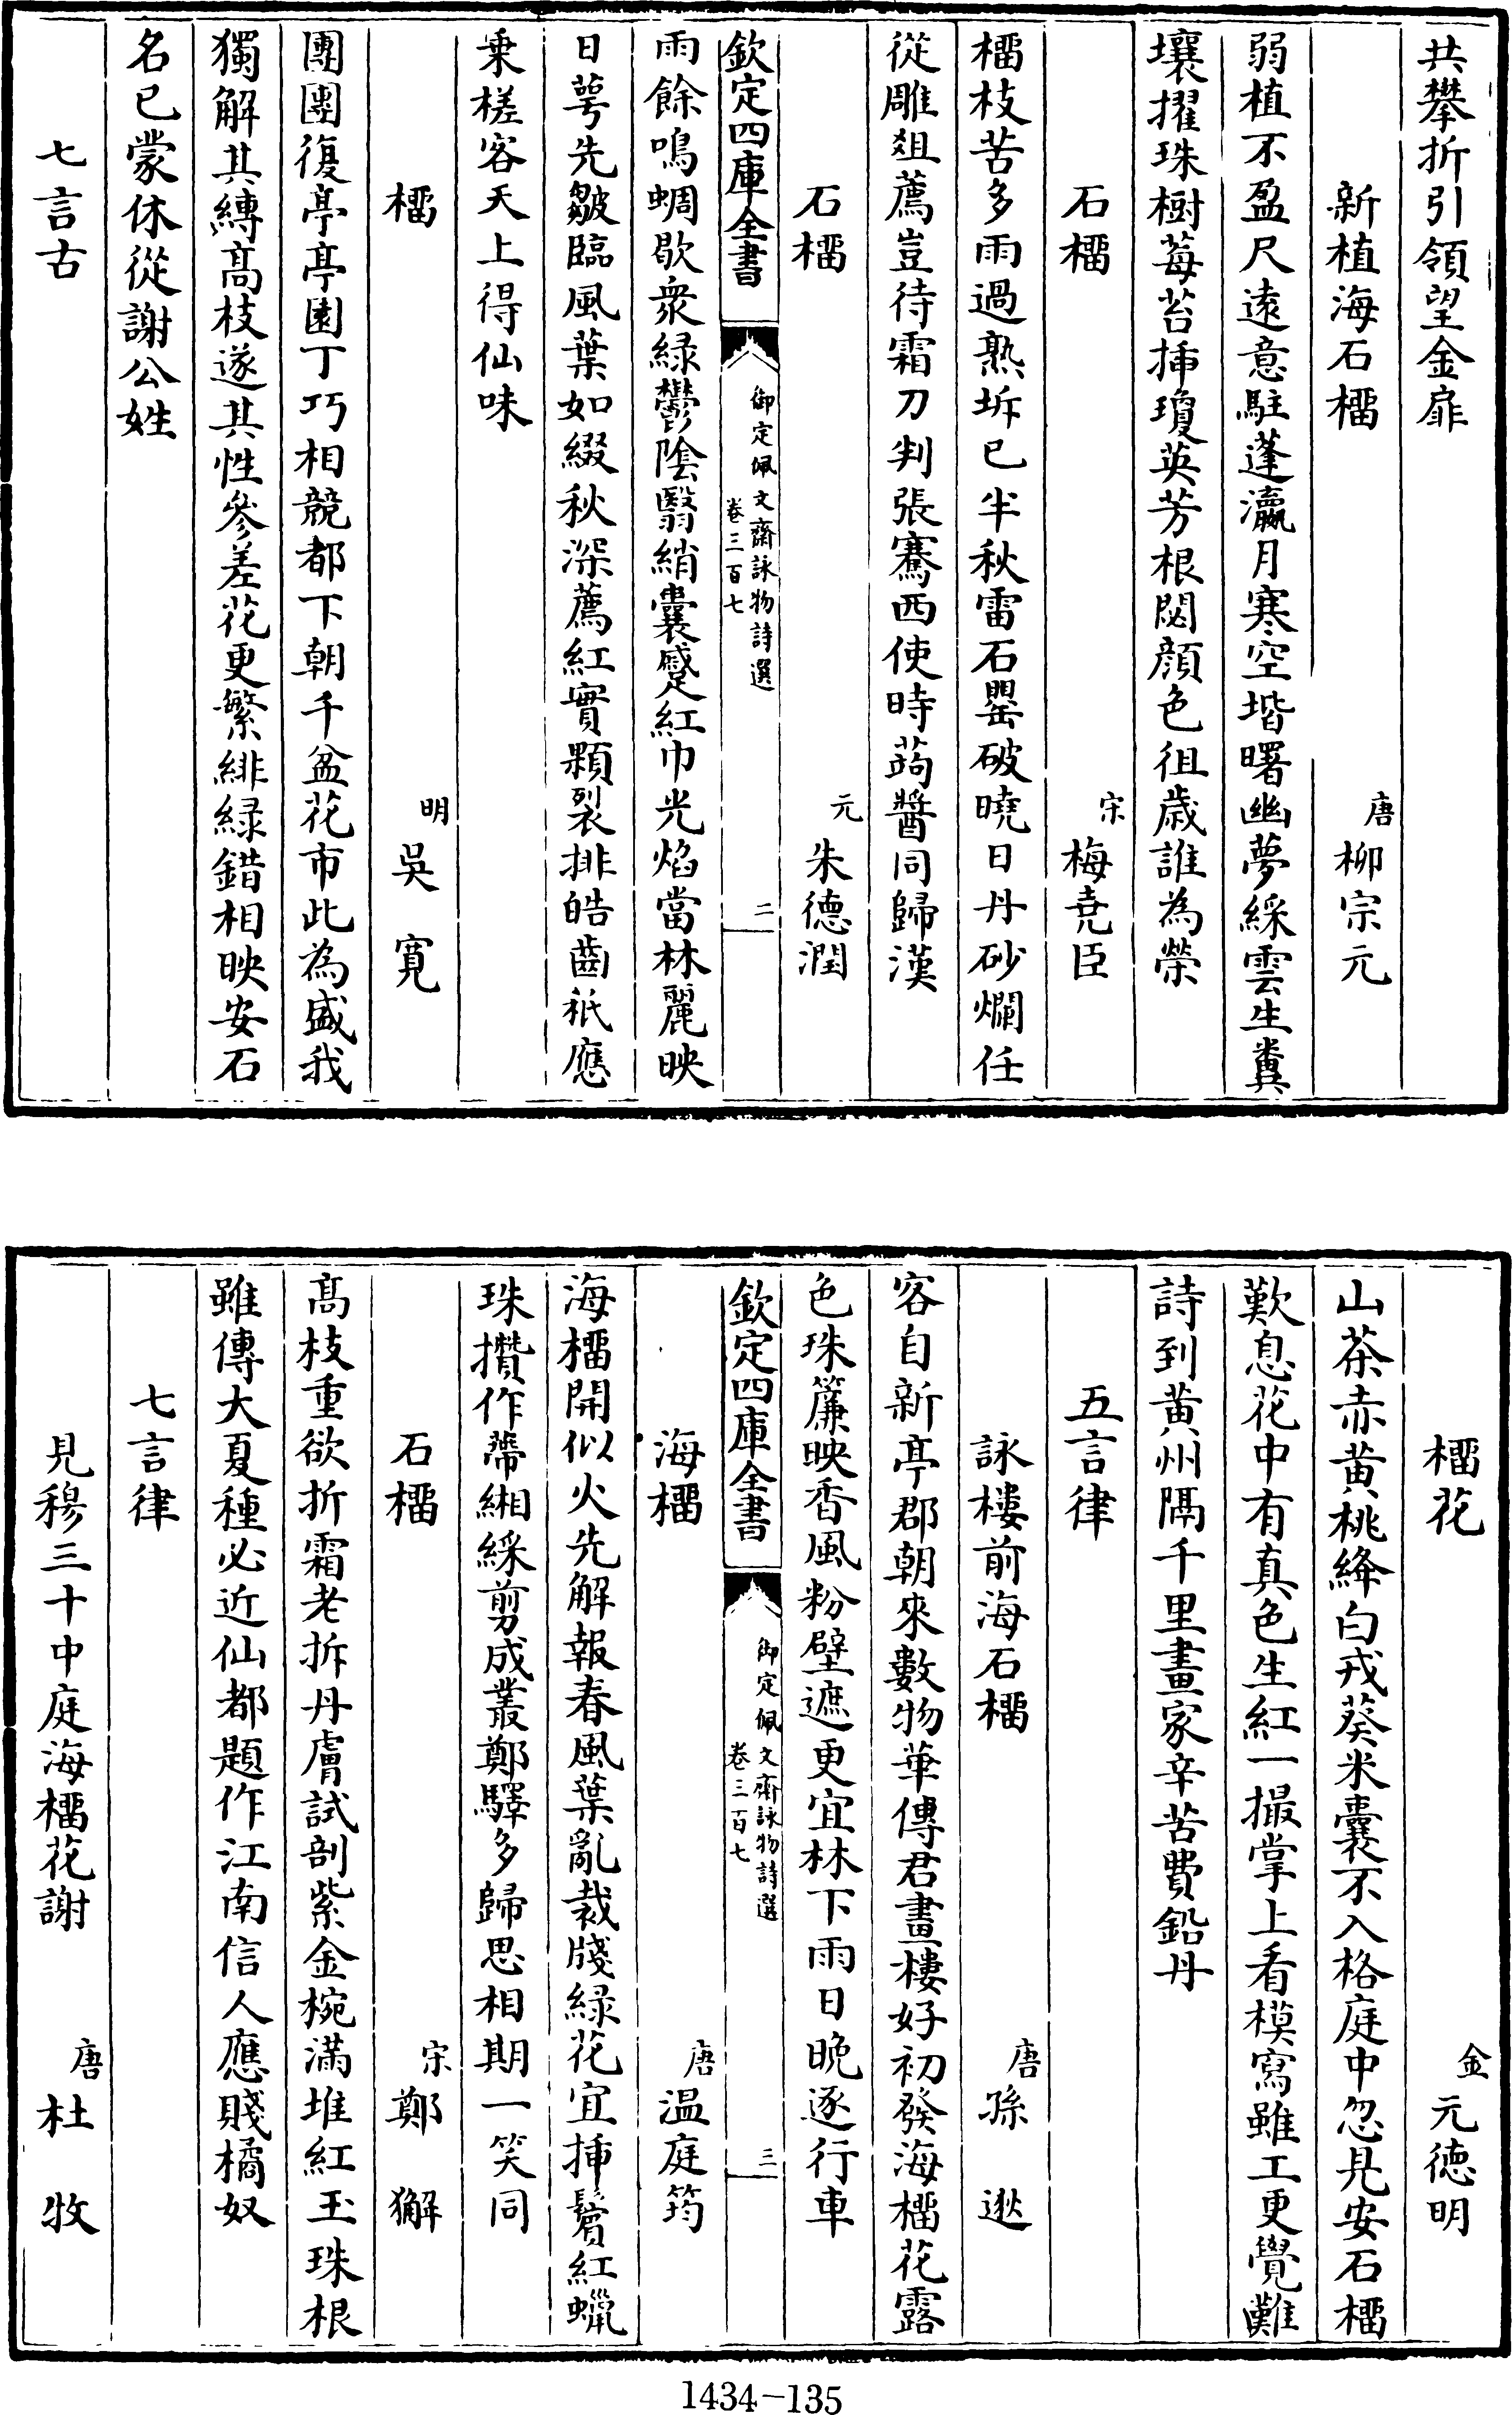 共攀折引領望金扉
新植海石橊　唐柳宗元
弱植不盈尺遠意駐蓬瀛月寒空堦曙幽夢綵雲生糞
壤擢珠樹莓苔揷瓊英芳根閟顔色徂歳誰為榮
石橊　宋梅堯臣
橊枝苦多雨過熟坼已半秋雷石罌破曉日丹砂爛任
從雕俎薦豈待霜刀判張騫西使時蒟醬同歸漢
石橊　元朱德潤
欽定四庫全書　御定佩文齋詠物詩選　卷三百七　二
雨餘鳴蜩歇衆緑鬱陰翳綃囊蹙紅巾光焰當林麗映
日萼先皺臨風葉如綴秋深薦紅實顆裂排皓齒秪應
乗槎客天上得仙味
橊　明吳寛
團團復亭亭園丁巧相競都下朝千盆花市此為盛我
獨解其縛髙枝遂其性參差花更繁緋緑錯相映安石
名已蒙休從謝公姓
七言古
橊花　金元德明
山茶赤黄桃絳白戎葵米囊不入格庭中忽見安石橊
歎息花中有真色生紅一撮掌上看模寫雖工更覺難
詩到黄州隔千里畫家辛苦費鉛丹
五言律
詠樓前海石橊　唐孫逖
客自新亭郡朝來數物華傳君畫樓好初發海橊花露
色珠簾映香風粉壁遮更宜林下雨日晚逐行車
欽定四庫全書　御定佩文齋詠物詩選　卷三百七　三
海橊　唐温庭筠
海橊開似火先解報春風葉亂裁牋緑花宜揷鬢紅蠟
珠攢作蔕緗綵剪成叢鄭驛多歸思相期一笑同
石橊　宋鄭獬
髙枝重欲折霜老拆丹膚試剖紫金椀滿堆紅玉珠根
雖傳大夏種必近仙都題作江南信人應賤橘奴
七言律
見穆三十中庭海橊花謝　唐杜牧
1434-135